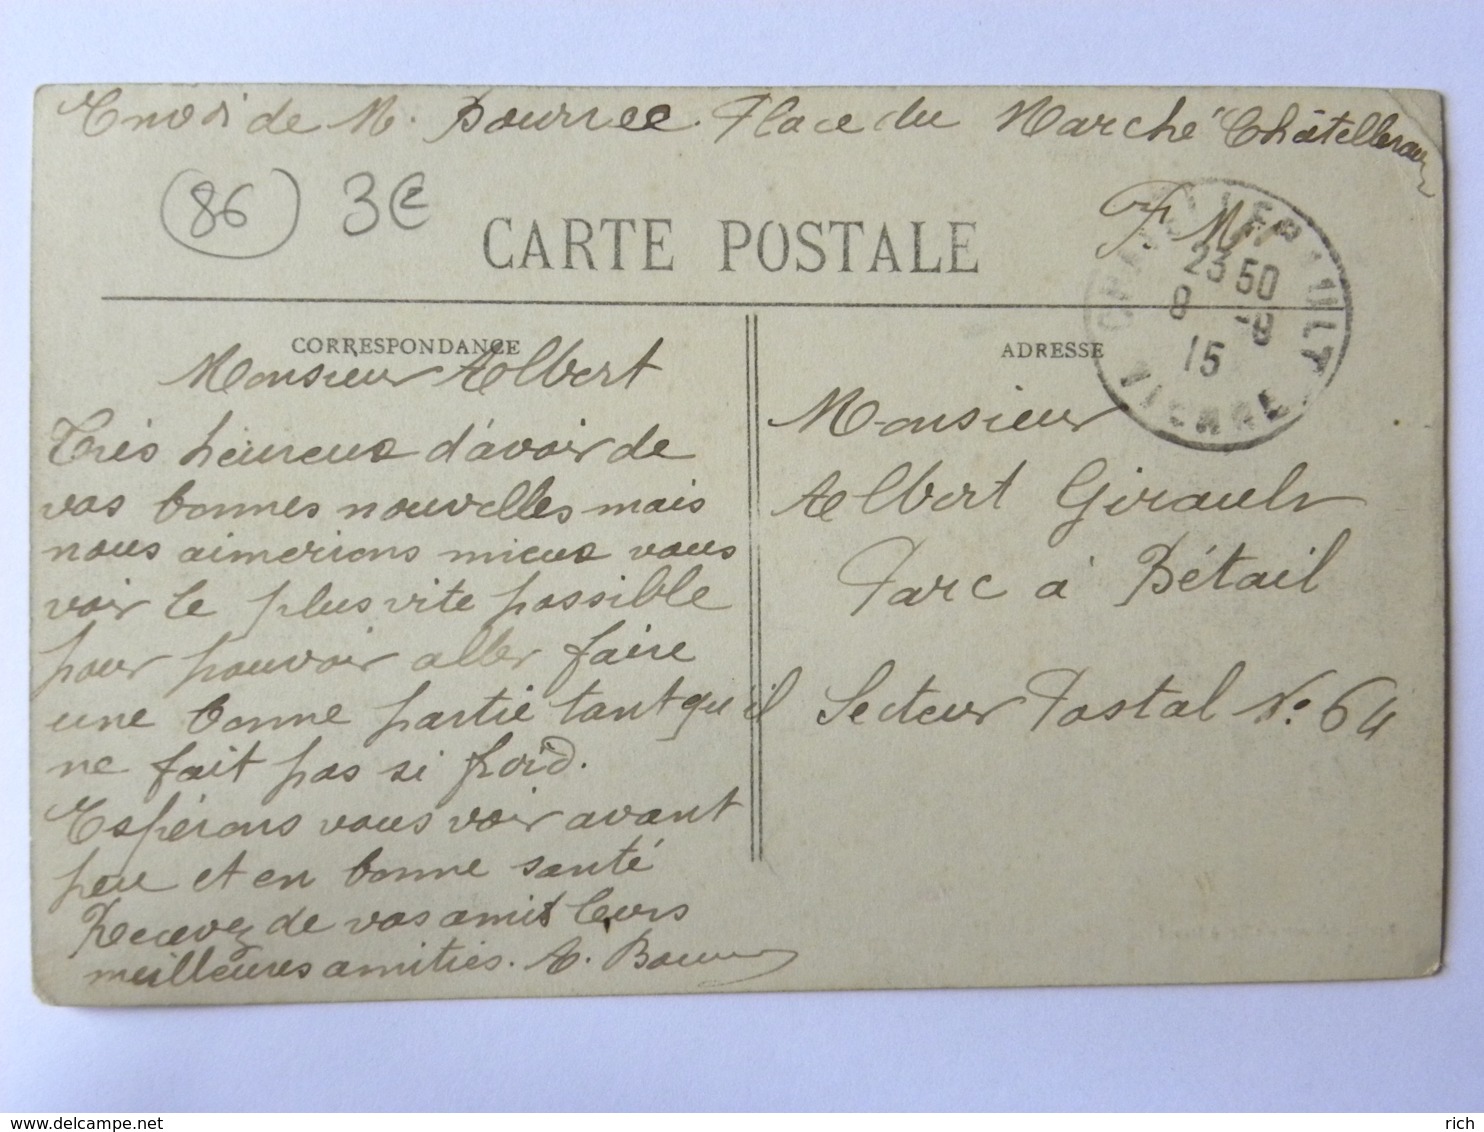 Envoi de M. Bourree. Place du Marché Châtellerault
86 3€
F M
CARTE POSTALE
CHATELLERAULT
23 50
8 -8
15
VIENNE
CORRESPONDANCE
Monsieur Albert
Très heureux d'avoir de
vos bonnes nouvelles mais
nous aimerions mieux vous
voir le plus vite possible
pour pouvoir aller faire
une bonne partie tant qu'il
ne fait pas si froid.
Espérons vous voir avant
peu et en bonne santé
Recevez de vos amis leurs
meilleures amitiés. A. Bourree
ADRESSE
Monsieur
Albert Girault
Parc à Bétail
Secteur Postal No 64
www.delcampe.net
rich